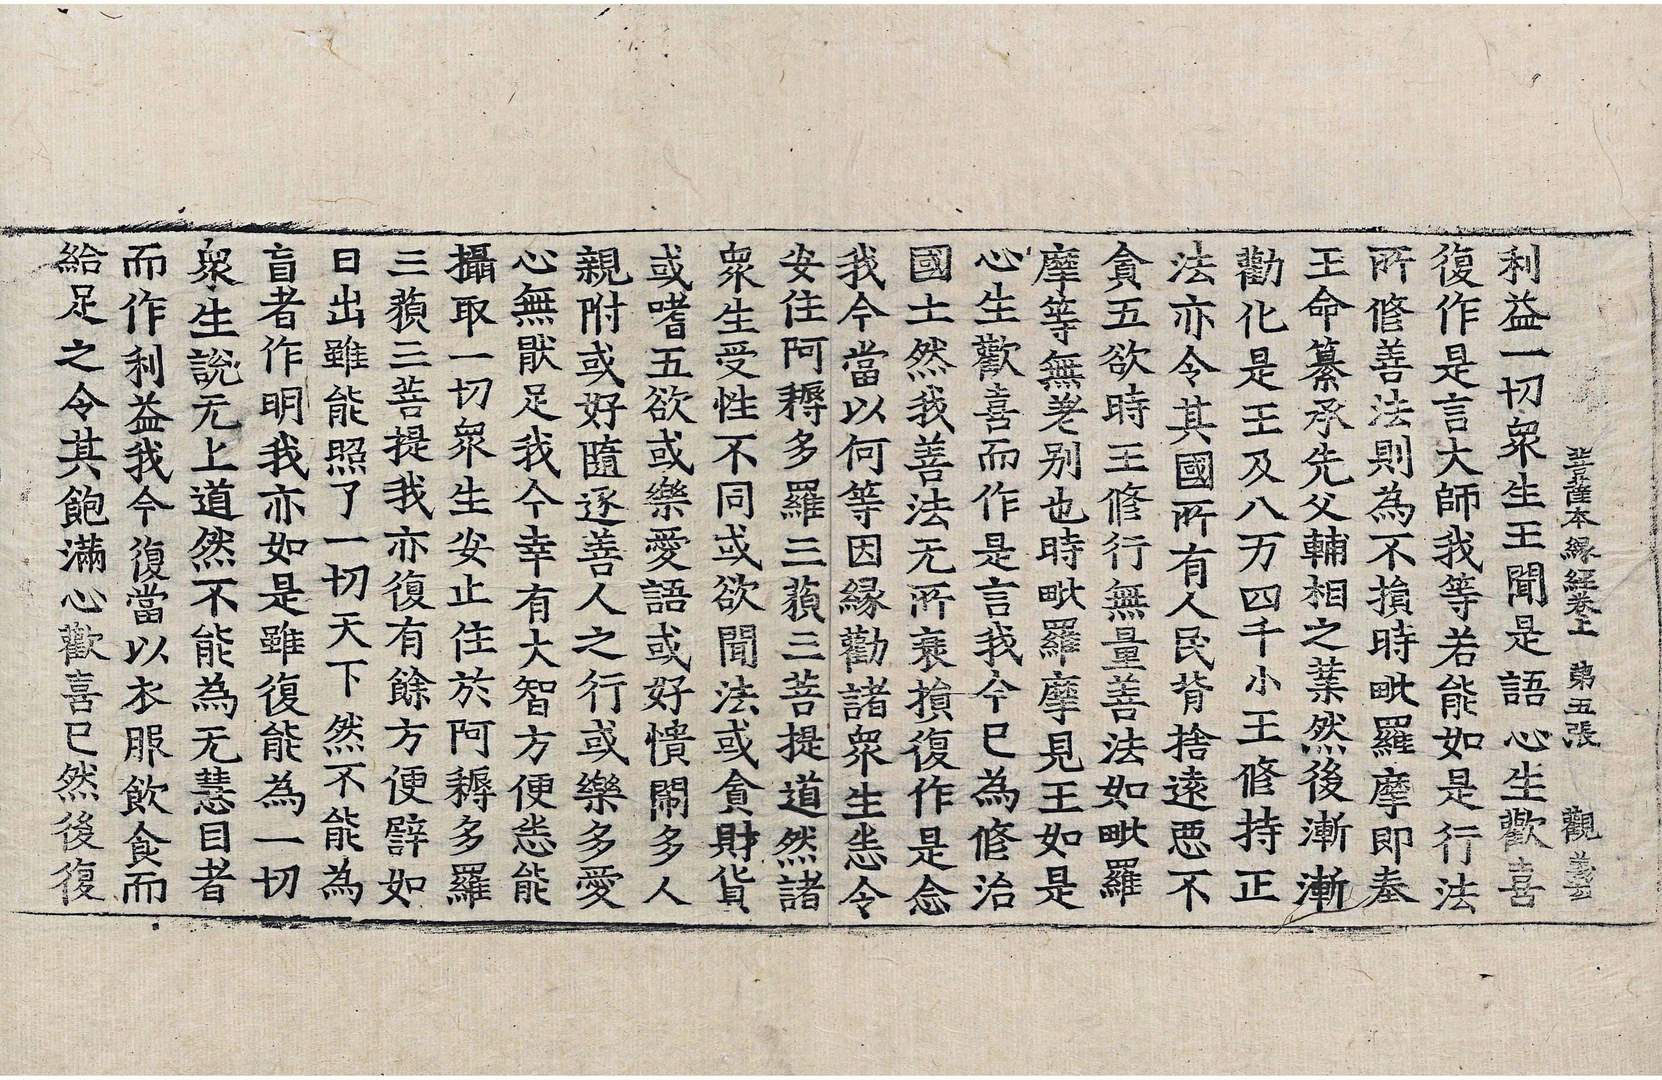 菩薩本緣經卷上 第五張 觀善
利益一切衆生王聞是語心生歡喜
復作是言大師我等若能如是行法
所修善法則為不損時毗羅摩即奉
王命纂承先父輔相之業然後漸漸
勸化是王及八万四千小王修持正
法亦令其國所有人民背捨遠惡不
貪五欲時王修行無量善法如毗羅
摩等無差別也時毗羅摩見王如是
心生歡喜而作是言我今已為修治
國土然我善法无所衰損復作是念
我今當以何等因緣勸諸衆生悉令
安住阿耨多羅三藐三菩提道然諸
衆生受性不同或欲聞法或貪財貨
或嗜五欲或樂愛語或好憒閙多人
親附或好隨逐善人之行或樂多愛
心無猒足我今幸有大智方便悉能
攝取一切衆生安止住於阿耨多羅
三藐三菩提我亦復有餘方便譬如
日出雖能照了一切天下然不能為
盲者作明我亦如是雖復能為一切
衆生說无上道然不能為无慧目者
而作利益我今復當以衣服飲食而
給足之令其飽滿心歡喜已然後復